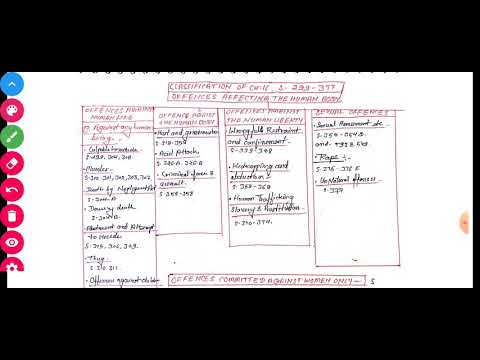 CLASSIFICATION OF CH-16, S-299-377
OFFENCES AFFECTING THE HUMAN BODY
OFFENCES AGAINST
HUMAN LIFE
Against any human
being
Culpable homicide
S-299, 304, 308
Murder
S-300, 301, 302, 303, 307
Death by Negligence
S-304-A
Dowry death
S-304B
Abetment and Attempt
to suicide
S-305, 306, 309
Thug
S-310, 311
Offences against child
OFFENCE AGAINST
THE HUMAN BODY
Hurt and grievous hurt
S-319-338
Acid Attack
S-326-A 326 B
Criminal force &
assault
S-355-358
OFFENCES AGAINST
THE HUMAN LIBERTY
Wrongful Restraint
and confinement
S-339-348
Kidnapping and
abduction
S-359-369
Human Trafficking
Slavery & Prostitution
S-370-374
SEXUAL OFFENCES
Sexual Harassment etc
S-354-354D
and
Rape
S-375-376 E
UnNatural offences
S-377
OFFENCES COMMITTED AGAINST WOMEN ONLY - S